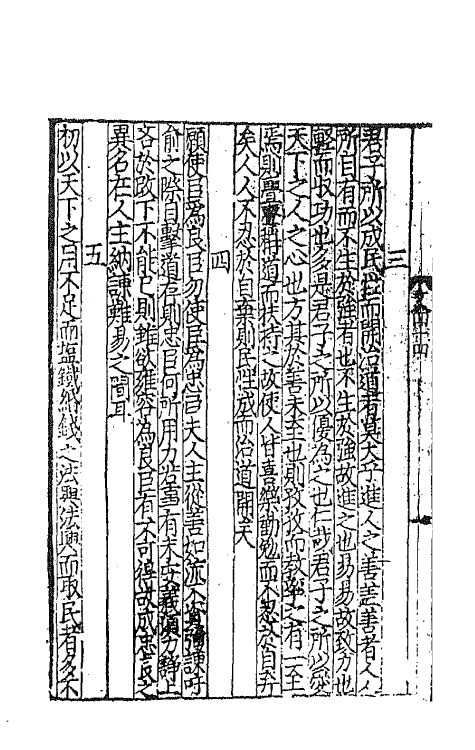 三
君子所以成民性而開治道者莫大乎進人之善蓋善者人人
所自有而不生於強者也不生於強故進之也易易故致力也
輕而收功也多是君子之所以優為之也仁哉君子之所以變
天下之人之心也方其於善未至也則孜孜而教率之有一至
焉則亹亹稱道而扶持之故使人甘喜樂勸勉而不忍於自弃
矣人人不忍於自棄則民性成而治道開矣
四
願使臣為良臣勿使臣為忠臣夫人主從善如流不資彊諫吁
俞之際自擊道存則忠臣何所用力若事有未安義須力諍上
吝於改下不能已則雖欲雍容為良臣有不可得故成忠良之
異名在人主納諫難易之間耳
五
初以天下之用不足而塩鐵緡錢之法興法興而取民者多不